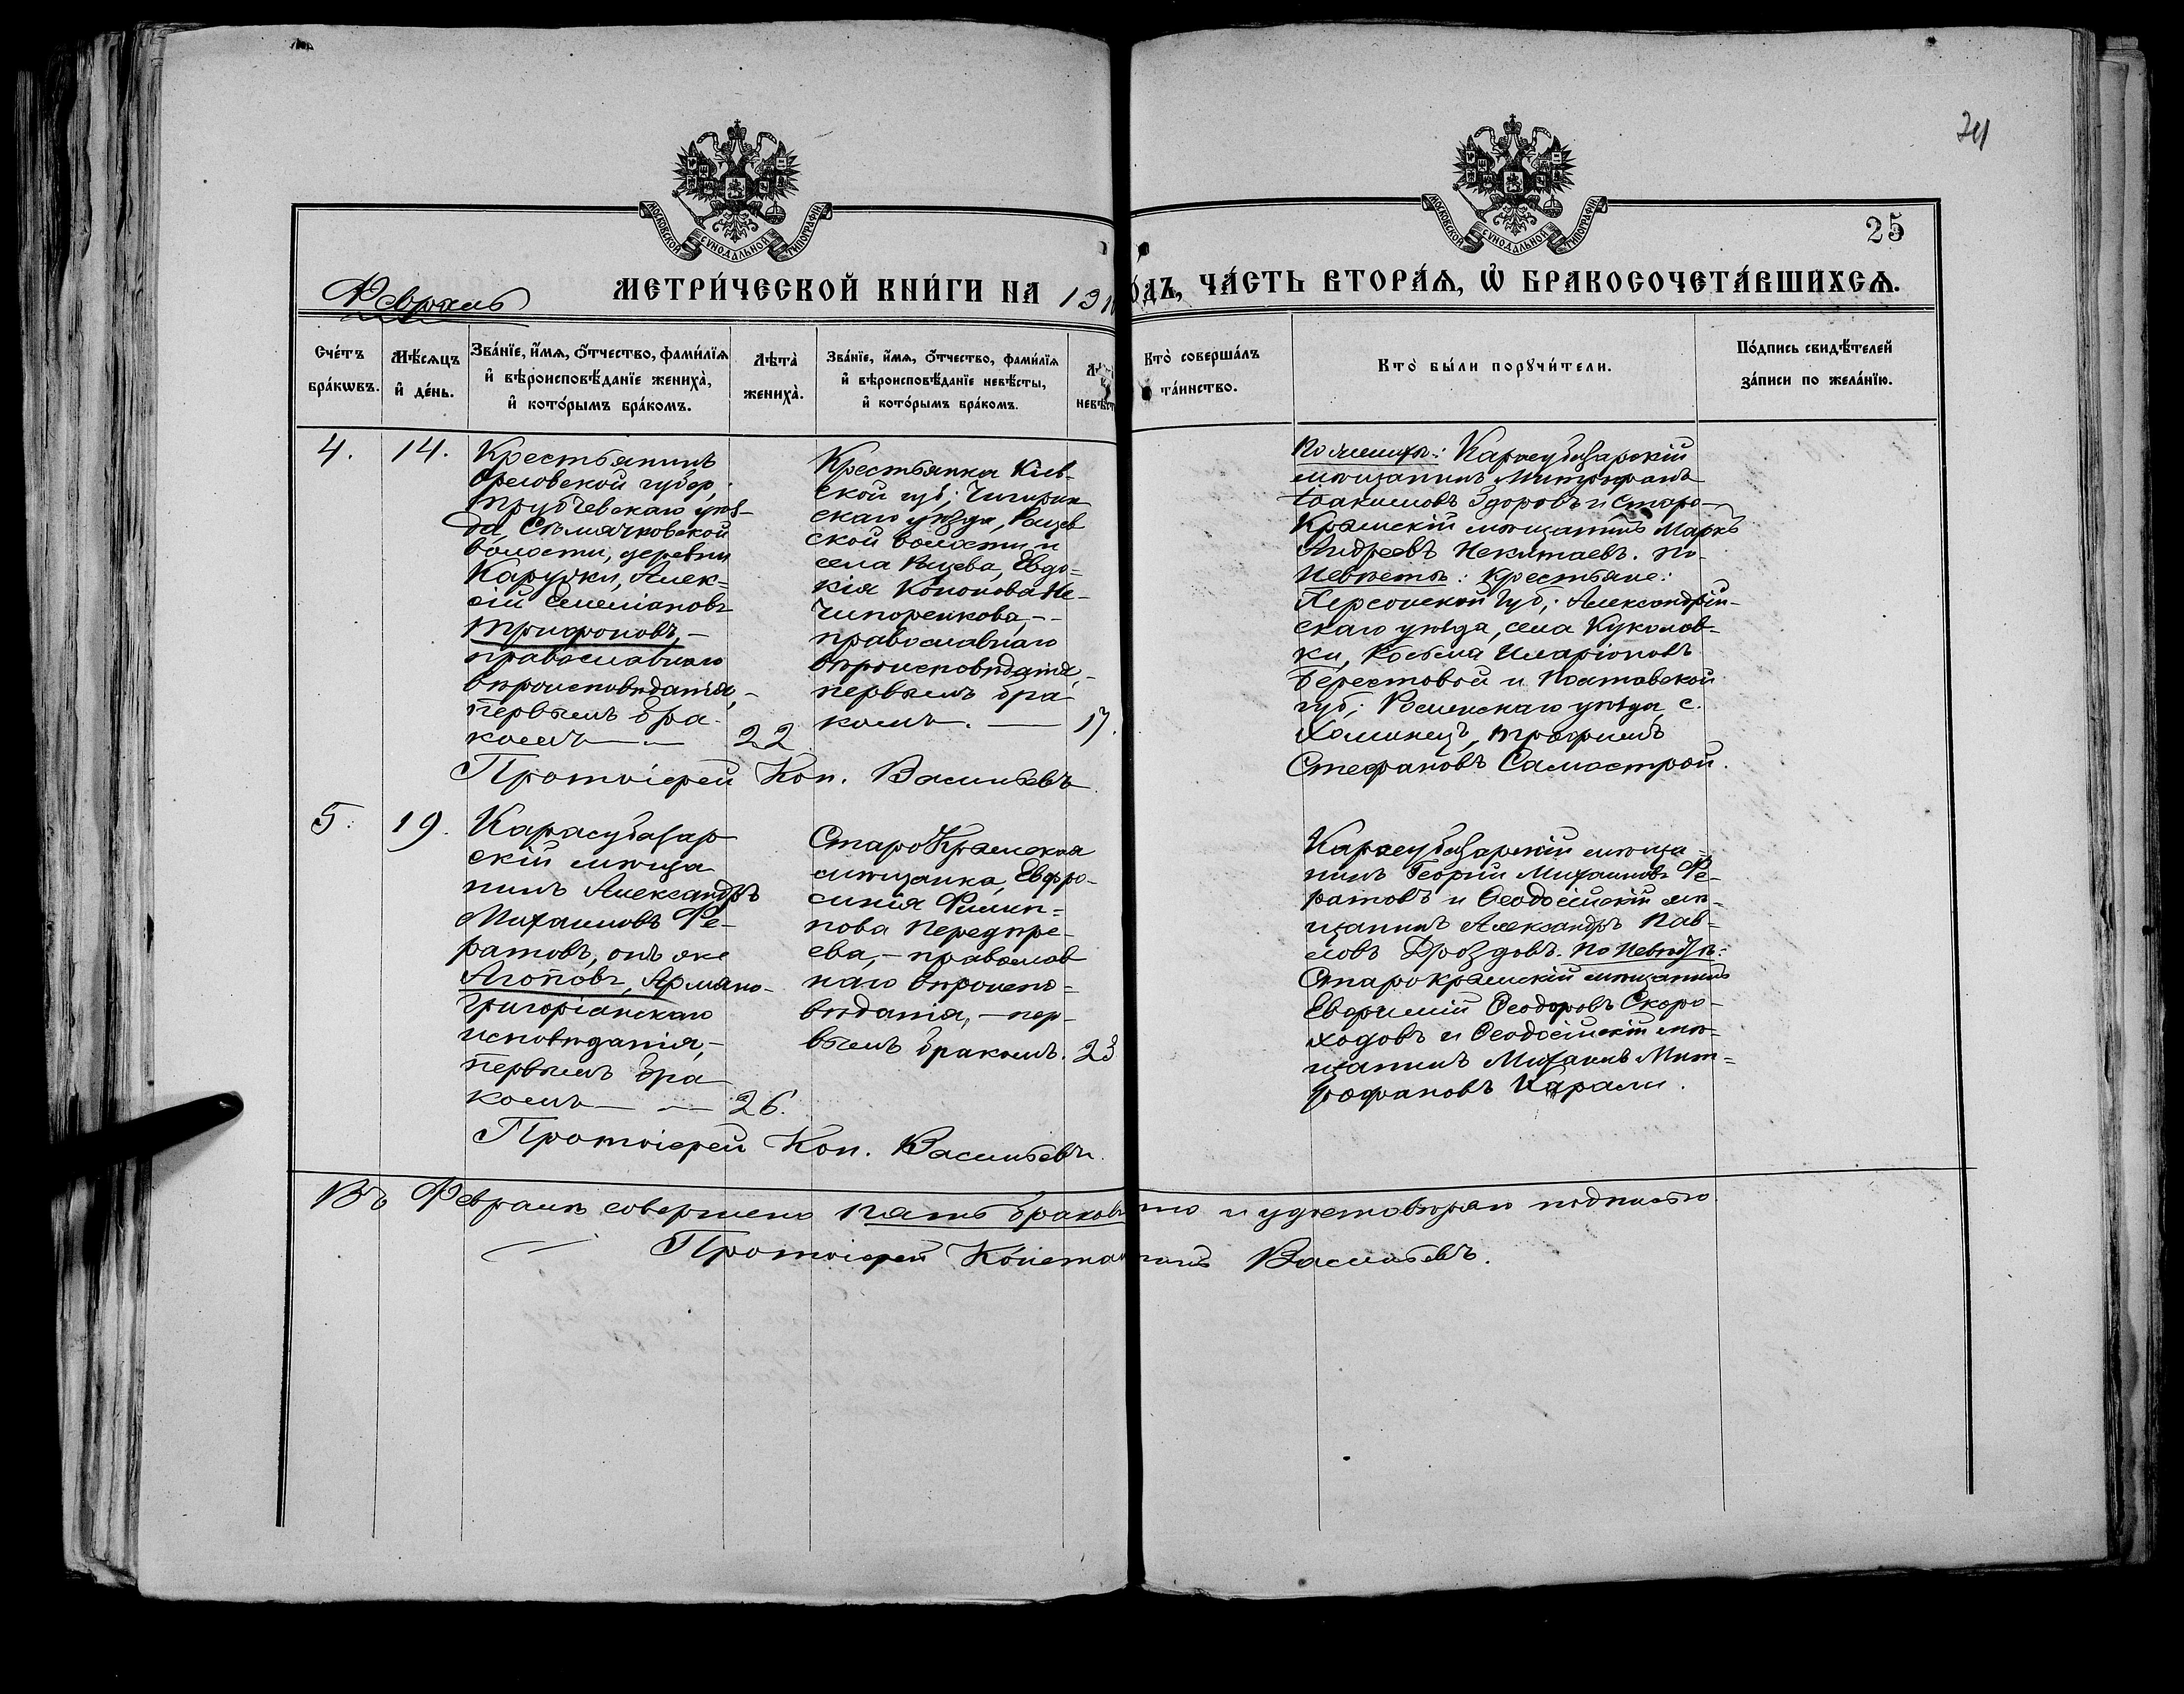 24
МОСКОВСКОЙ СѴНОДАЛЬНОЙ ТИПОГРАФІИ
МОСКОВСКОЙ СѴНОДАЛЬНОЙ ТИПОГРАФІИ
25
Февраль
МЕТРИ́ЧЕСКОЙ КНИ́ГИ НА 191
О́ДЪ, ЧА́СТЬ ВТОРА́Ѧ, Ѽ БРАКОСОЧЕТА́ВШИХСѦ.
Сче́тъ бра́кѡвъ.
Мѣ́сѧцъ и҆ де́нь.
Зва́нїе, и҆́мѧ, ѻ҆́тчество, фами́лїѧ
и҆ вѣроисповѣ́данїе жениха̀,
и҆ кото́рымъ бра́комъ.
Лѣта̀ жениха̀.
Зва́нїе, и҆́мѧ, ѻ҆́тчество, фами́лїѧ
и҆ вѣроисповѣ́данїе невѣ́сты,
и҆ кото́рымъ бра́комъ.
Кто̀ соверша́лъ
та́инство.
Кто̀ бы́ли порꙋчи́тели.
По́дпись свидѣ́телей
за́писи по жела́нїю.
4.
14.
Крестьянинъ
Орловской губер,
Трубчевскаго уѣз-
да, Сѣмячковской
волости, деревни
Карузки, Алек=
сій Емеліановъ
Трифоновъ,-
православнаго
вѣроисповѣданія,-
первымъ бра-
комъ
22
Крестьянка Кіев-
ской губ; Чигирин
скаго уѣзда, Рацев
ской волости и
села Рацева, Евдо=
кія Кононова Не-
чипоренкова,--
православнаго
вѣроисповѣданія,-
первымъ бра
комъ.
17.
По женихѣ: Карасубазарскій
мѣщанинъ Митрофанъ
Іоакимовъ Здоровъ и Старо-
Крымскій мѣщанинъ Маркъ
Андреевъ Неклтаевъ. По
Невѣстѣ: Крестьяне:
Херсонской Губ; Александрій-
скаго уѣзда, села Куколов-
ки, Косьма Иларіоновъ
Берестовой и Полтавской
губ; Роменскаго уѣзда, с.
Хоминецъ, Трофимъ
Стефановъ Самострой.
Протоіерей Кон. Васильевъ
5.
19.
Карасубазар
скій мѣща
нинъ Александръ
Михаиловъ Фе-
ратовъ, онъ же
Агоповъ, Армяно-
Григоріанскаго
исповѣданія,-
первымъ бра
комъ
26.
СтароКрымская
мѣщанка, Евфро-
синія Филип=
пова Передѣре-
ева,- православ
наго вѣроиспо=
вѣданія,- пер-
вымъ бракомъ.
23
Карасубазарскій мѣща-
нинъ Георгій Михаиловъ Фе-
ратовъ и Ѳеодосійскій мѣ-
щанинъ Александръ Пав-
ловъ Дроздовъ. По Невѣстѣ:
СтароКрымскій мѣщанинъ
Евфимій Ѳеодоровъ Скоро-
ходовъ и Ѳеодосійскій мѣ-
щанинъ Михаилъ Мит=
рофановъ Карали.
Протоіерей Кон. Васильевъ.
Въ Февралѣ совершено пять браковъ, что и удостовѣряю подписью
Протоіерей Константинъ Васильевъ.